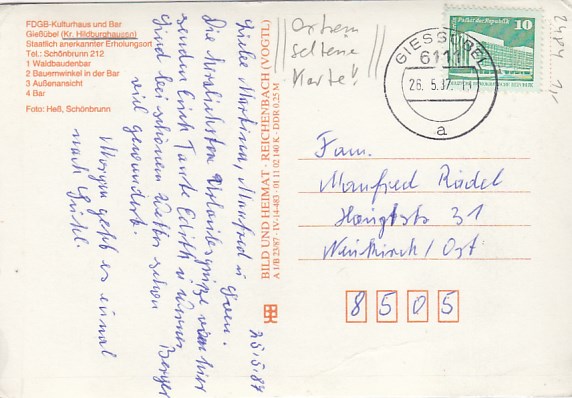 FDGB-Kulturhaus und Bar
Gießübel (Kr. Hildburghausen)
Staatlich anerkannter Erholungsort
Tel.: Schönbrunn 212
1 Waldbaudenbar
2 Bauernwinkel in der Bar
3 Außenansicht
4 Bar
Foto: Heß, Schönbrunn
Liebe Martina, Manfred u.
Die herzlichsten Urlaubsgrüße von hier
senden Euch Tante Edith u. Werner Berger
Sind bei schönem Wetter schon
viel gewandert.
Morgen geht es einmal
nach Suhl.
25.5.87
BILD UND HEIMAT · REICHENBACH (VOGTL)
A 1/B 23/87 · IV-14-483 · 01 11 02 140 K · DDR 0,25 M
extrem
seltene
Karte!
GIESSÜBEL
6111
26. 5. 87
a
Palast der Republik
10
Fam.
Manfred Rädel
31
Neukirch/Ost
8505